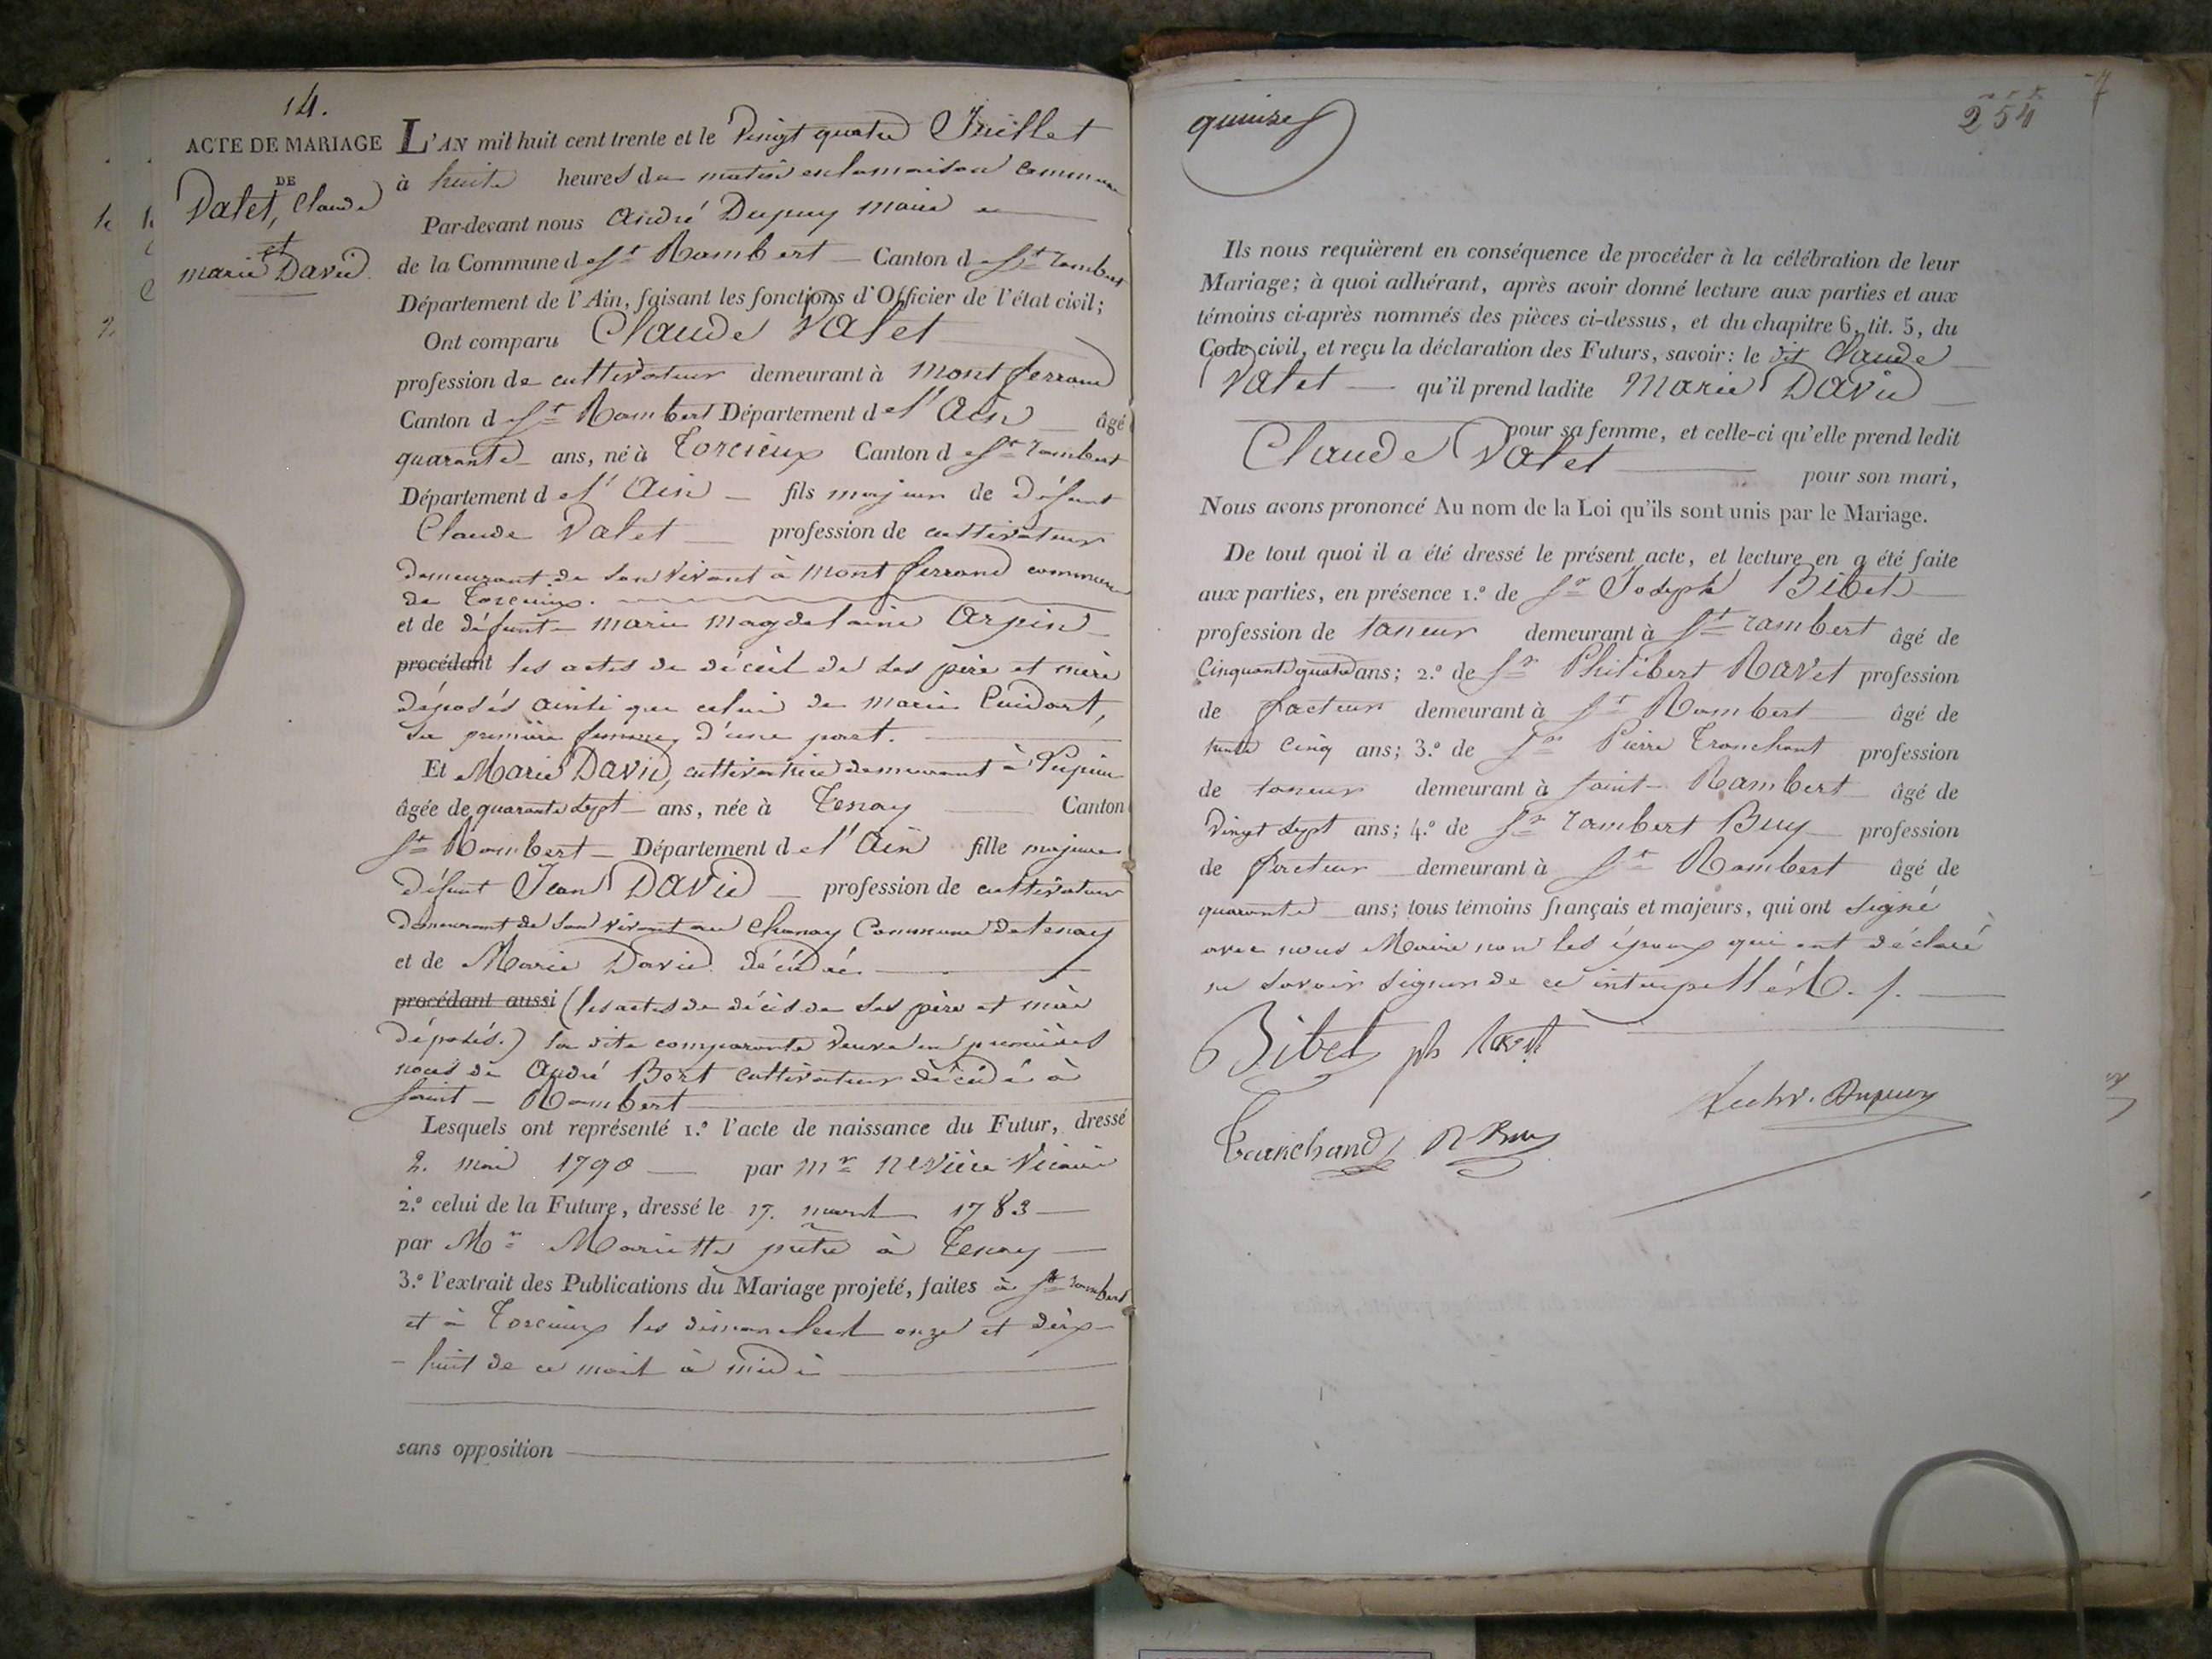 14.
ACTE DE MARIAGE
DE
Valet, Claude
et
marie David.
L'AN mil huit cent trente et le Vingt quatre Juillet
à huite heures du matin en la maison commune
Par-devant nous André Dupuy maire
de la Commune de St Rambert Canton de St rambert
Département de l'Ain, faisant les fonctions d'Officier de l'état civil;
Ont comparu Claude Valet
profession de cultivateur demeurant à Montferrand
Canton de St Rambert Département de l'Ain âgé
quarante ans, né à Torcieux Canton de St rambert
Département de l'Ain fils majeur de défunt
Claude Valet profession de cultivateur
demeurant de son vivant à Montferrand commune
de Torcieux.
et de défunte marie magdelaine Arpin
procédant les actes de décès de ses père et mère
déposés ainsi que celui de marie Cuidort,
sa première femme, d'une part.
Et Marie David, cultivatrice demeurant à
âgée de quarante sept ans, née à Tenay Canton
St Rambert Département de l'Ain fille majeure
défunt Jean David profession de cultivateur
demeurant de son vivant au Chanay Commune de tenay
et de Marie David décédée
procédant aussi (les actes de décès de ses père et mère
déposés.) la dite comparante veuve en premières
noces de André Bort cultivateur décédé à
saint-Rambert
Lesquels ont représenté 1.º l'acte de naissance du Futur, dressé
2. mai 1790 par Mr nevière Vicaire
2.º celui de la Future, dressé le 17. mars 1783
par Mr Mariette prêtre à Tenay
3.º l'extrait des Publications du Mariage projeté, faites à St rambert
et à Torcieux les dimanches onze et dix-
-huit de ce mois à midi
sans opposition
quinze
254
7
Ils nous requièrent en conséquence de procéder à la célébration de leur
Mariage; à quoi adhérant, après avoir donné lecture aux parties et aux
témoins ci-après nommés des pièces ci-dessus, et du chapitre 6, tit. 5, du
Code civil, et reçu la déclaration des Futurs, savoir: le dit Claude
Valet qu'il prend ladite Marie David
pour sa femme, et celle-ci qu'elle prend ledit
Claude Valet
pour son mari,
Nous avons prononcé Au nom de la Loi qu'ils sont unis par le Mariage.
De tout quoi il a été dressé le présent acte, et lecture en a été faite
aux parties, en présence 1.º de Sr Joseph Bibet
profession de taneur demeurant à St rambert âgé de
Cinquante quatre ans; 2.º de Sr Philibert Ravet profession
de facteur demeurant à St Rambert âgé de
trente cinq ans; 3.º de Sr Pierre Tronchant profession
de taneur demeurant à saint-Rambert âgé de
Vingt sept ans; 4.º de Sr rambert Buy profession
de facteur demeurant à St Rambert âgé de
quarante ans; tous témoins français et majeurs, qui ont signé
avec nous Maire non les époux qui ont déclaré
ne savoir signer de ce interpellés
Bibet ph Ravet
Dupuy
Tranchand R Buy